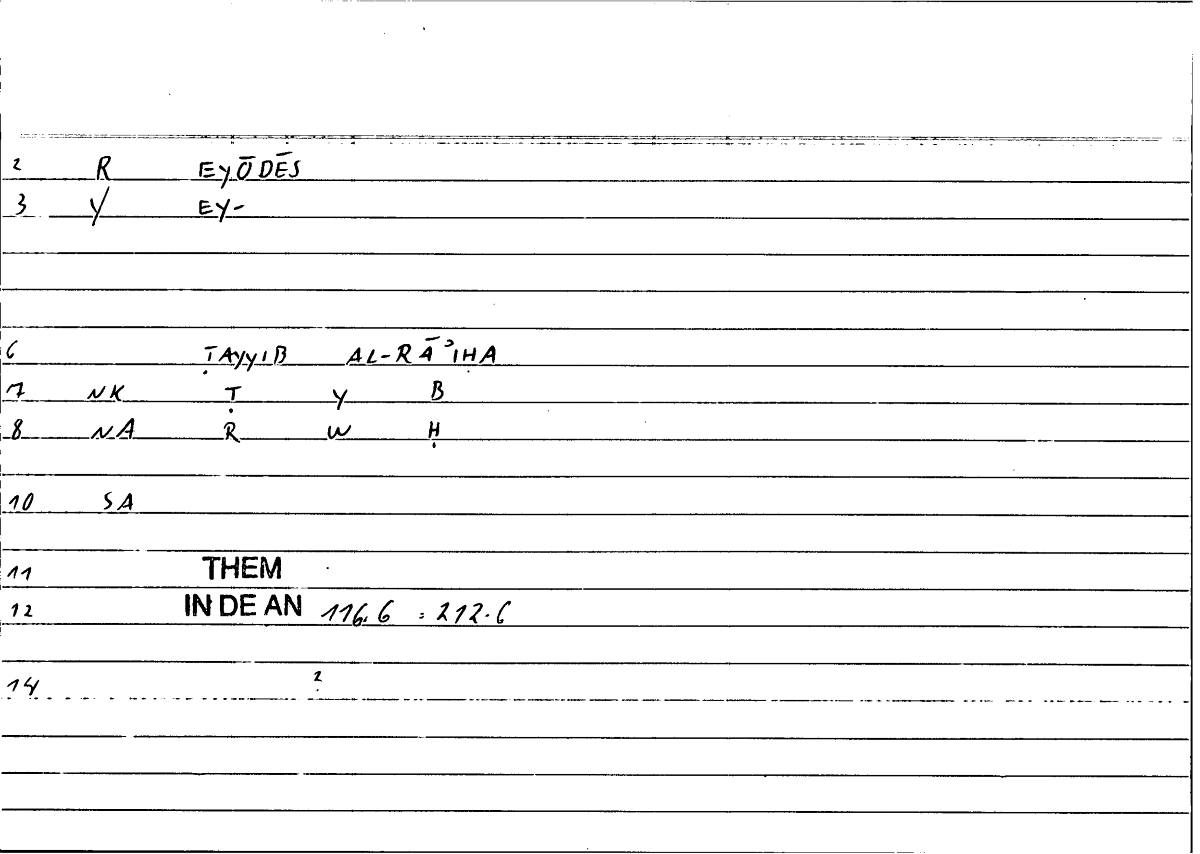 2 R EYŌDĒS
3 Y EY-
6 ṬAYYIB AL-RĀʾIḤA
7 NK Ṭ Y B
8 NA R W Ḥ
10 SA
11 THEM
12 IN DE AN 116.6 : 212.6
14 2